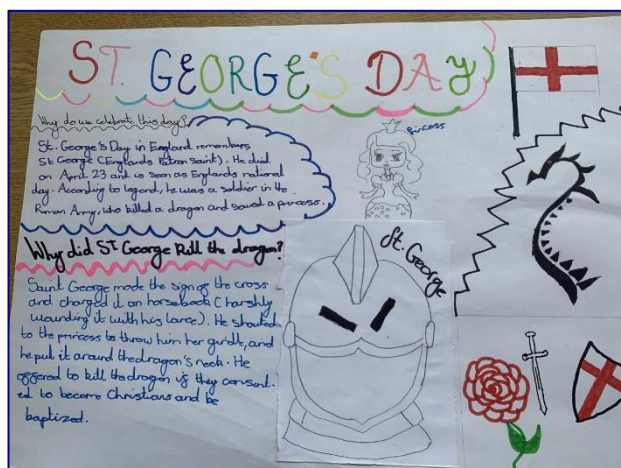 ST. GEORGE'S DAY
Why do we celebrate this day?
St. George's Day in England remembers
St George (England's Patron saint). He died
on April 23 and is seen as England's national
day. According to legend, he was a soldier in the
Roman Army, who killed a dragon and saved a princess.
Princess
Why did ST George kill the dragon?
Saint George made the sign of the cross
and charged it on horseback (harshly
wounding it with his lance). He shouted
to the princess to throw him her girdle, and
he put it around the dragon's neck. He
offered to kill the dragon if they consent.
ed to become Christians and be
baptized.
St. George